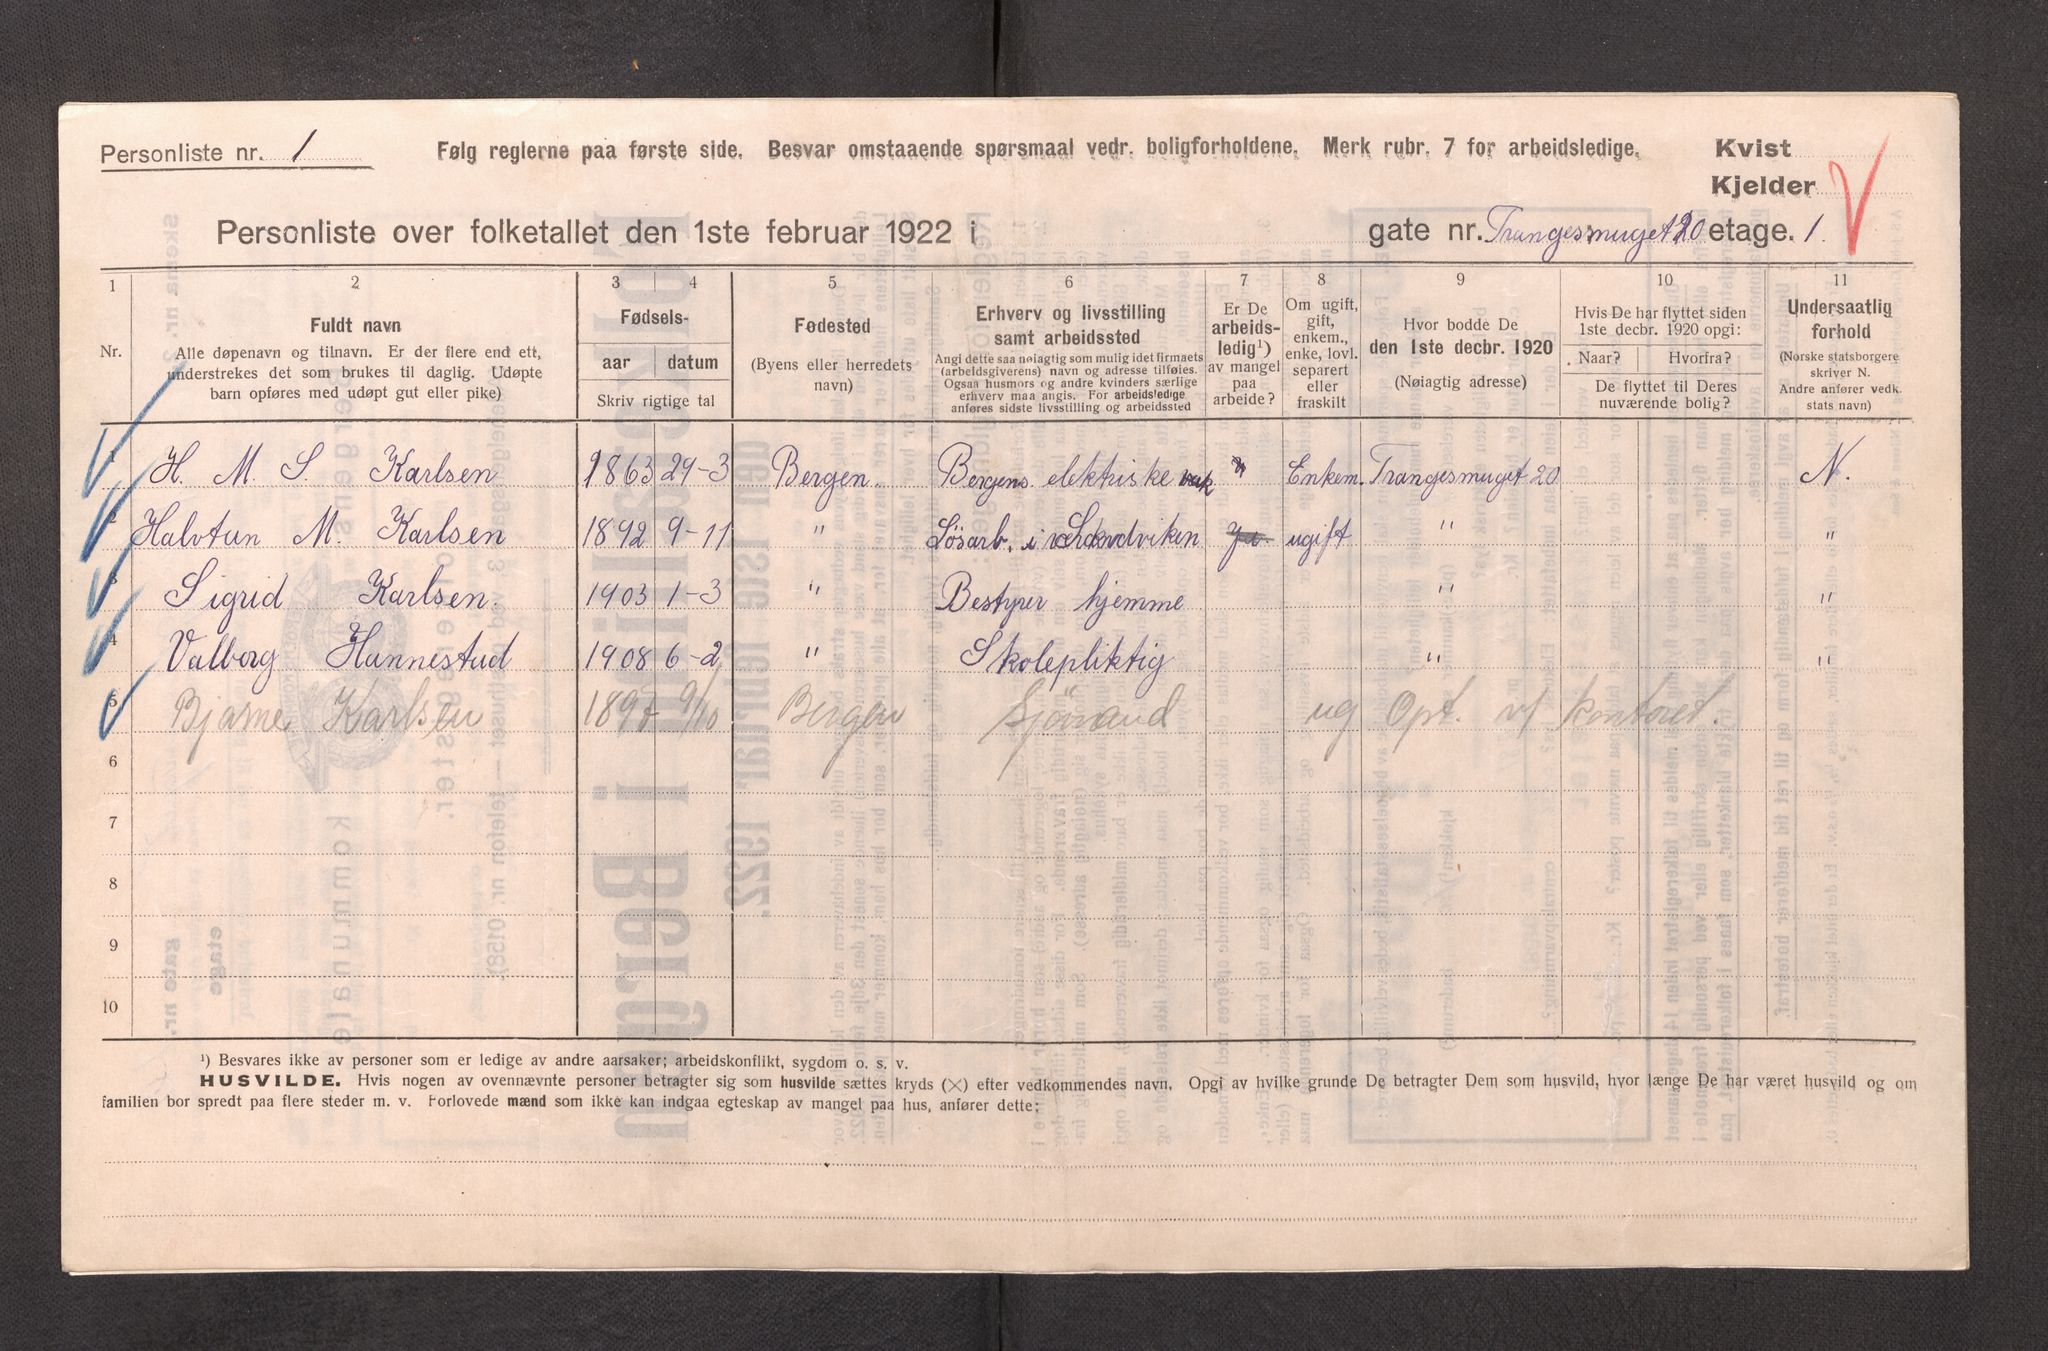 Personliste nr. 1 Følg reglerne paa første side. Besvar omstaaende spørsmaal vedr. boligforholdene. Merk rubr. 7 for arbeidsledige. Kvist
Kjelder
Personliste over folketallet den 1ste februar 1922 i gate nr. Trangesmuget 20 etage. 1.
1 2 3 4 5 6 7 8 9 10 11
Nr.
Fuldt navn
Alle døpenavn og tilnavn. Er der flere end ett,
understrekes det som brukes til daglig. Udøpte
barn opføres med udøpt gut eller pike)
Fødsels-
aar datum
Skriv rigtige tal
Fødested
(Byens eller herredets
navn)
Erhverv og livsstilling
samt arbeidssted
Angi dette saa nøiagtig som mulig idet firmaets
(arbeidsgiverens) navn og adresse tilføies.
Ogsaa husmors og andre kvinders særlige
erhverv maa angis. For arbeidsledige
anføres sidste livsstilling og arbeidssted
Er De
arbeids-
ledig¹)
av mangel
paa
arbeide?
Om ugift,
gift,
enkem.,
enke, lovl.
separert
eller
fraskilt
Hvor bodde De
den 1ste decbr. 1920
(Nøiagtig adresse)
Hvis De har flyttet siden
1ste decbr. 1920 opgi:
Naar? Hvorfra?
De flyttet til Deres
nuværende bolig?
Undersaatlig
forhold
(Norske statsborgere
skriver N.
Andre anfører vedk.
stats navn)
1 H. M. S. Karlsen 1863 29-3 Bergen. Bergens elektriske verk Enkem. Trangesmuget 20 N.
2 Halvtun M. Karlsen 1892 9-11 " Løsarb. i Sandviken ugift " "
3 Sigrid Karlsen. 1903 1-3 " Bestyrer hjemme " "
4 Valborg Hannestad 1908 6-2 " Skolepliktig " "
5 Bjarne Karlsen 1897 9/10 Bergen Sjømand ug Opt. v/ kontoret.
6
7
8
9
10
¹) Besvares ikke av personer som er ledige av andre aarsaker; arbeidskonflikt, sygdom o. s. v.
HUSVILDE. Hvis nogen av ovennævnte personer betragter sig som husvilde sættes kryds (×) efter vedkommendes navn. Opgi av hvilke grunde De betragter Dem som husvild, hvor længe De har været husvild og om
familien bor spredt paa flere steder m. v. Forlovede mænd som ikke kan indgaa egteskap av mangel paa hus, anfører dette: